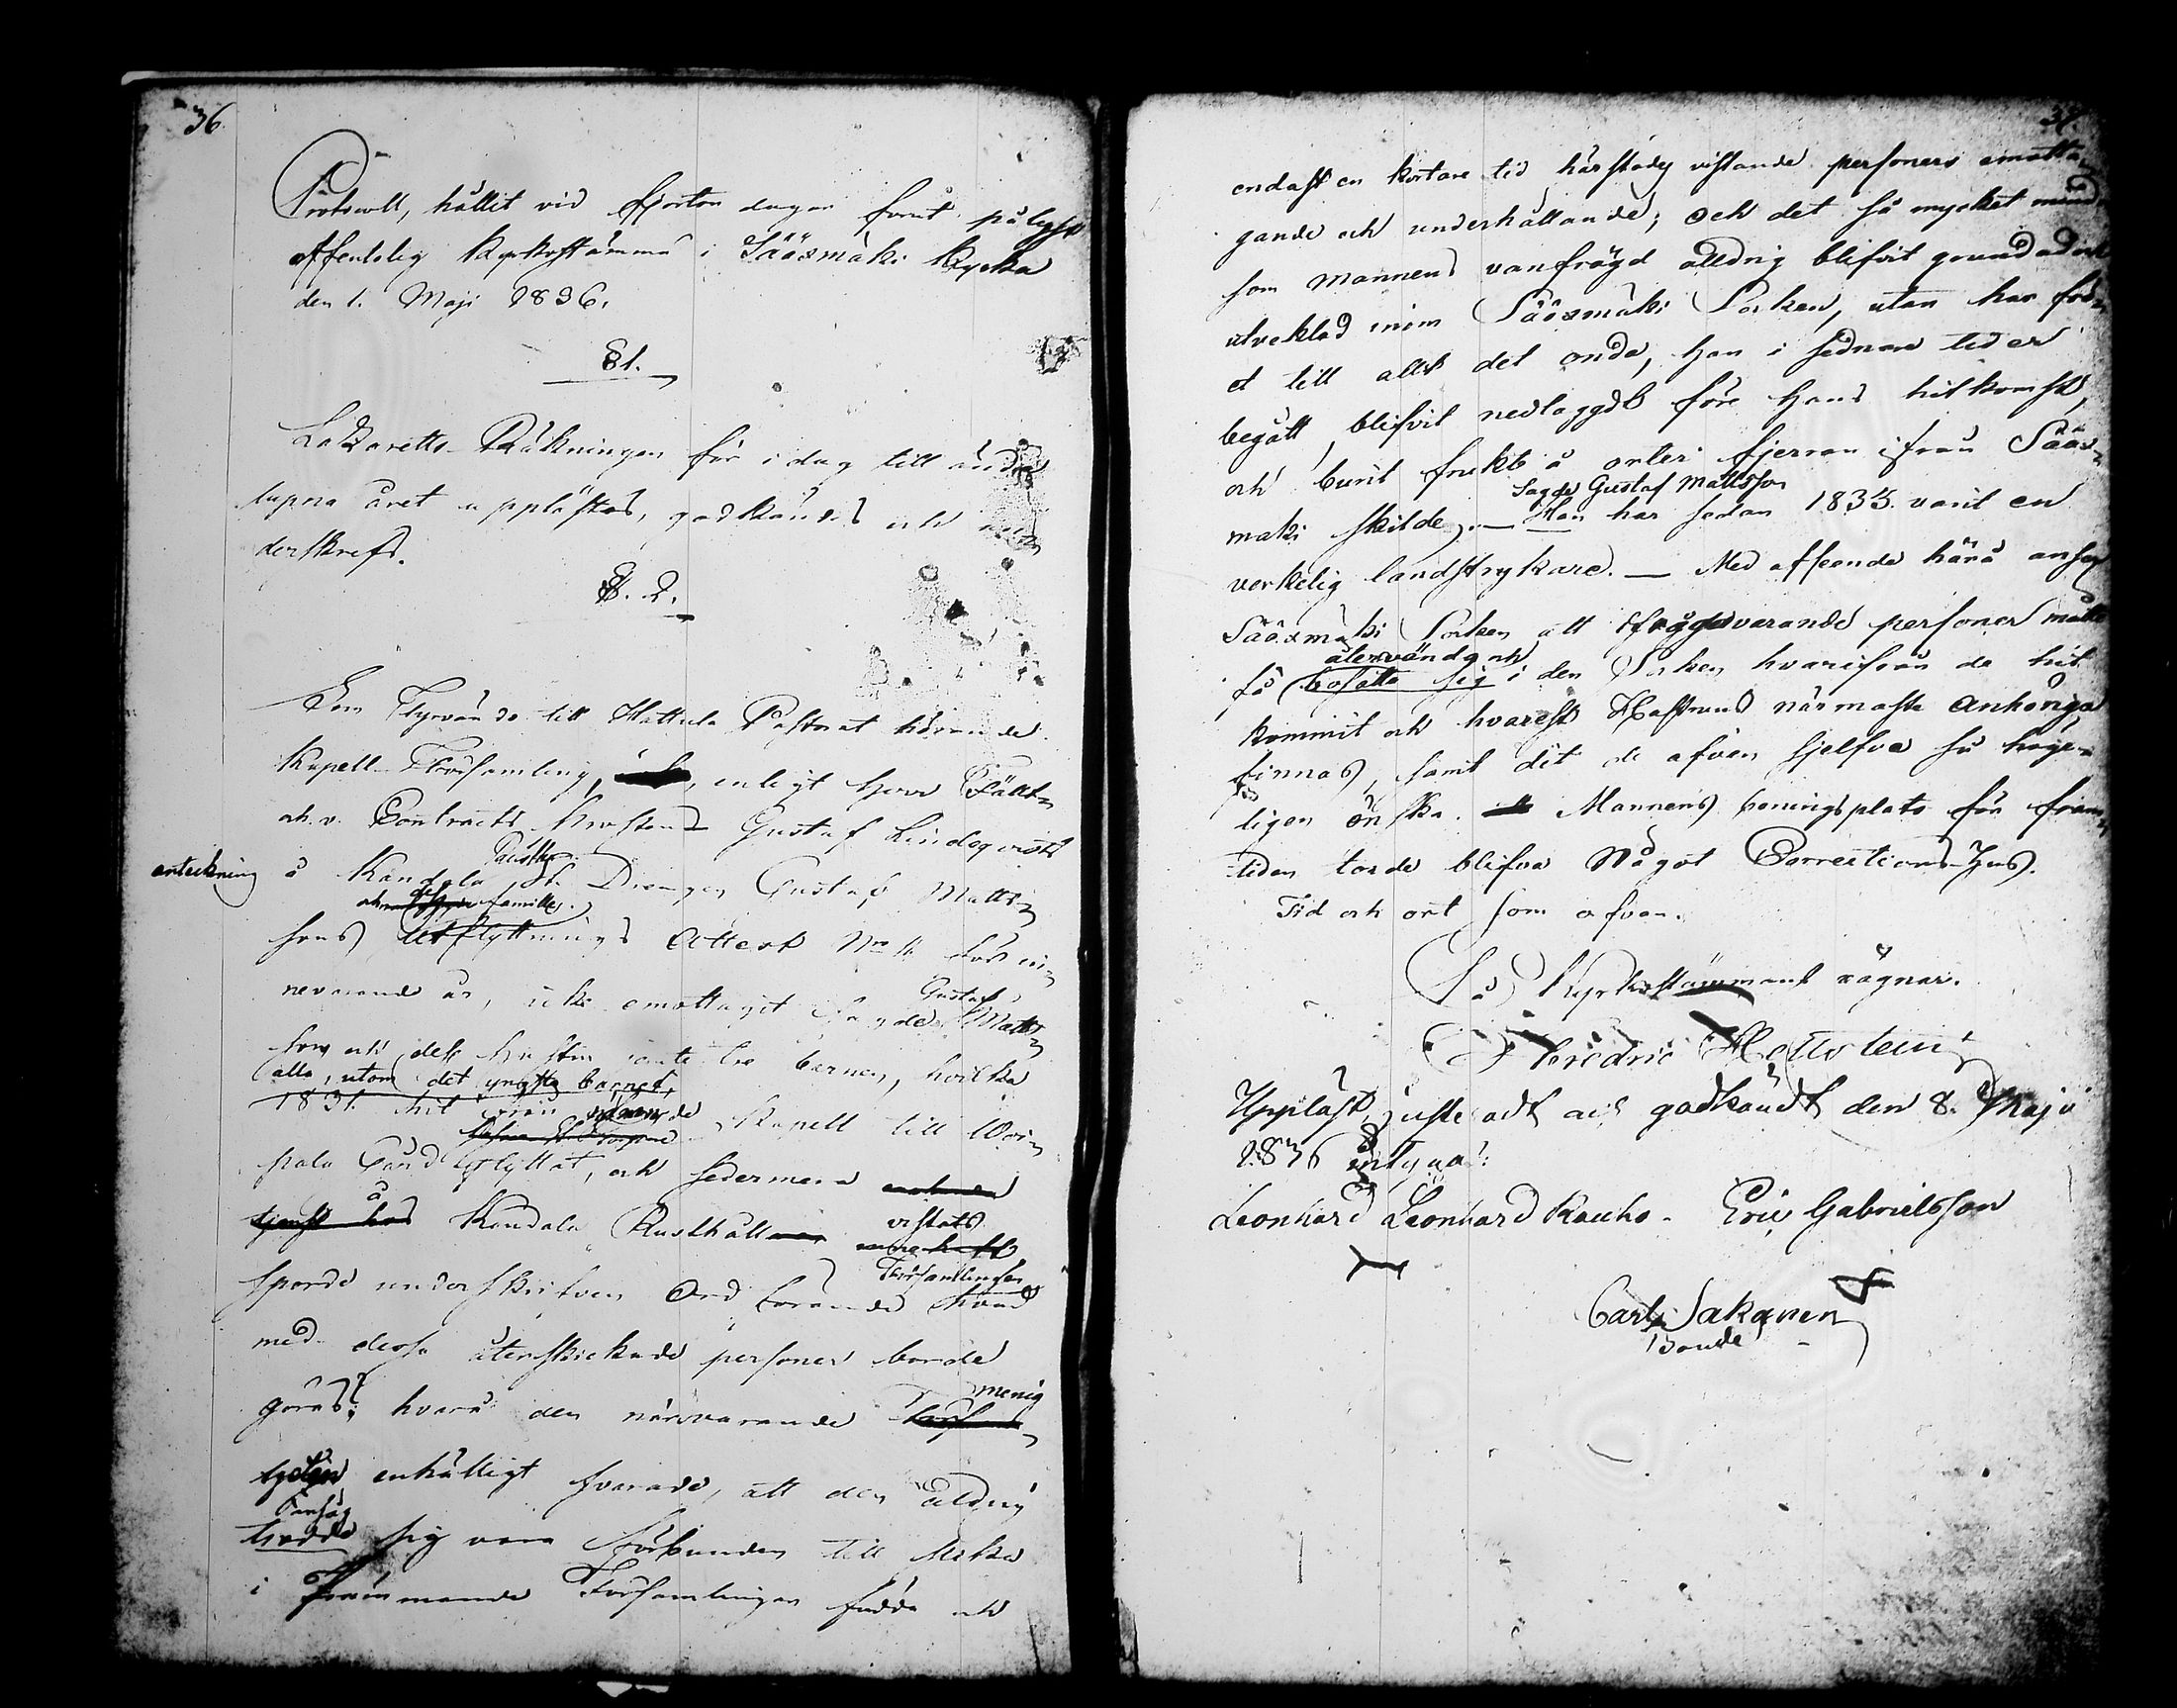 36.
Protocoll, hållit vid fjorton dagar förut pålyst
offentelig Kyrkostämma i Sääxmäki Kyrka
den 1. Maji 1836.
§ 1.
Lazaretts-Räkningen för i dag till ända
lupna året upplästes, godkändes och un¬
derskrefs.
§. 2.
Som Tyrvändö till Hattula Pastorat hörande
Kapell-Församling, enligt Herr Fält¬
och v. Contracts Prosten Gustaf Lindeqvists
anteckning å Kandola Drengen Gustaf Matts¬
och dess familles
sons utflyttnings Attest N:o för in¬
nevarande år, icke emottagit sagde Gustaf Matts¬
son och dess hustru jemte tre barnen, hvilka
alla, utom det yngsta barnet,
1831. hit ifrån nämnde Kapell till Voi¬
pala Gård flyttat, och sedermera
å Kandola Rusthåll vistats
sporde underskrifven Ordförande Församlingen hvad
med dessa återskickade personer borde
göras; hvarå den närvarande menig¬
heten enhälligt svarade, att den aldrig
ansåg
trodde sig vara förbunden till slika
i främmande Församlingar födda och
37.
endast en kortare tid härstädes vistande personers emotta¬
gande och underhållande; och det så mycket mindre
som mannens vanfrägd alldrig blifvit grundad och
utvecklad inom Sääxmäki Socken, utan har frö¬
et till allt det onda, han i sednare tider
begått, blifvit nedlaggdt före hans hitkomst,
och burit frukt å orter fjerran ifrån Sääx¬
mäki skilde. — Sagde Gustaf Mattsson har sedan 1833. varit en
verkelig landstrykare. — Med afseende härå anser
Sääxmäki Socken att ifrågavarande personer måtte
få återvända och bosätta sig i den Socken hvarifrån de hit
kommit och hvarest Hustruns närmaste Anhöriga
finnas, samt dit de äfven sjelfva så höge¬
ligen önska. Mannens boningsplats för fram¬
tiden torde blifva något Corrections-Hus.
Tid och ort som ofvan.
På Kyrkostämmans vägnar.
Fredric Hellstein
Uppläst, justeradt och godkändt den 8. Maji
1836 intyga:
Leonhard Leonhard Rauho - Eric Gabrielsson
Carl Sakanen
Bonde